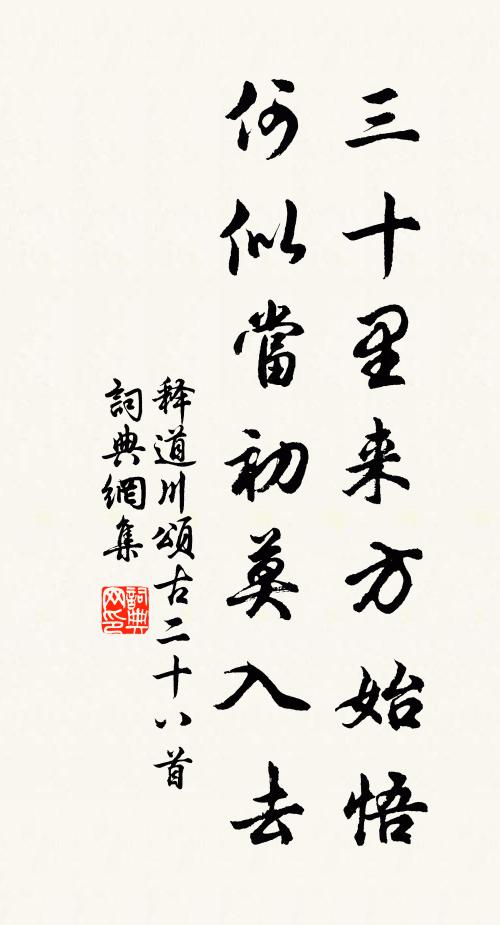 三十里来方始悟
何似當初莫入去
释道川頌古二十八首
詞典網集
詞典网印